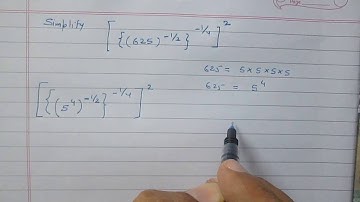 Simplify [{(625)^{-1/2}}^{-1/4}]^2
625 = 5 × 5 × 5 × 5
625 = 5^4
[{(5^4)^{-1/2}}^{-1/4}]^2